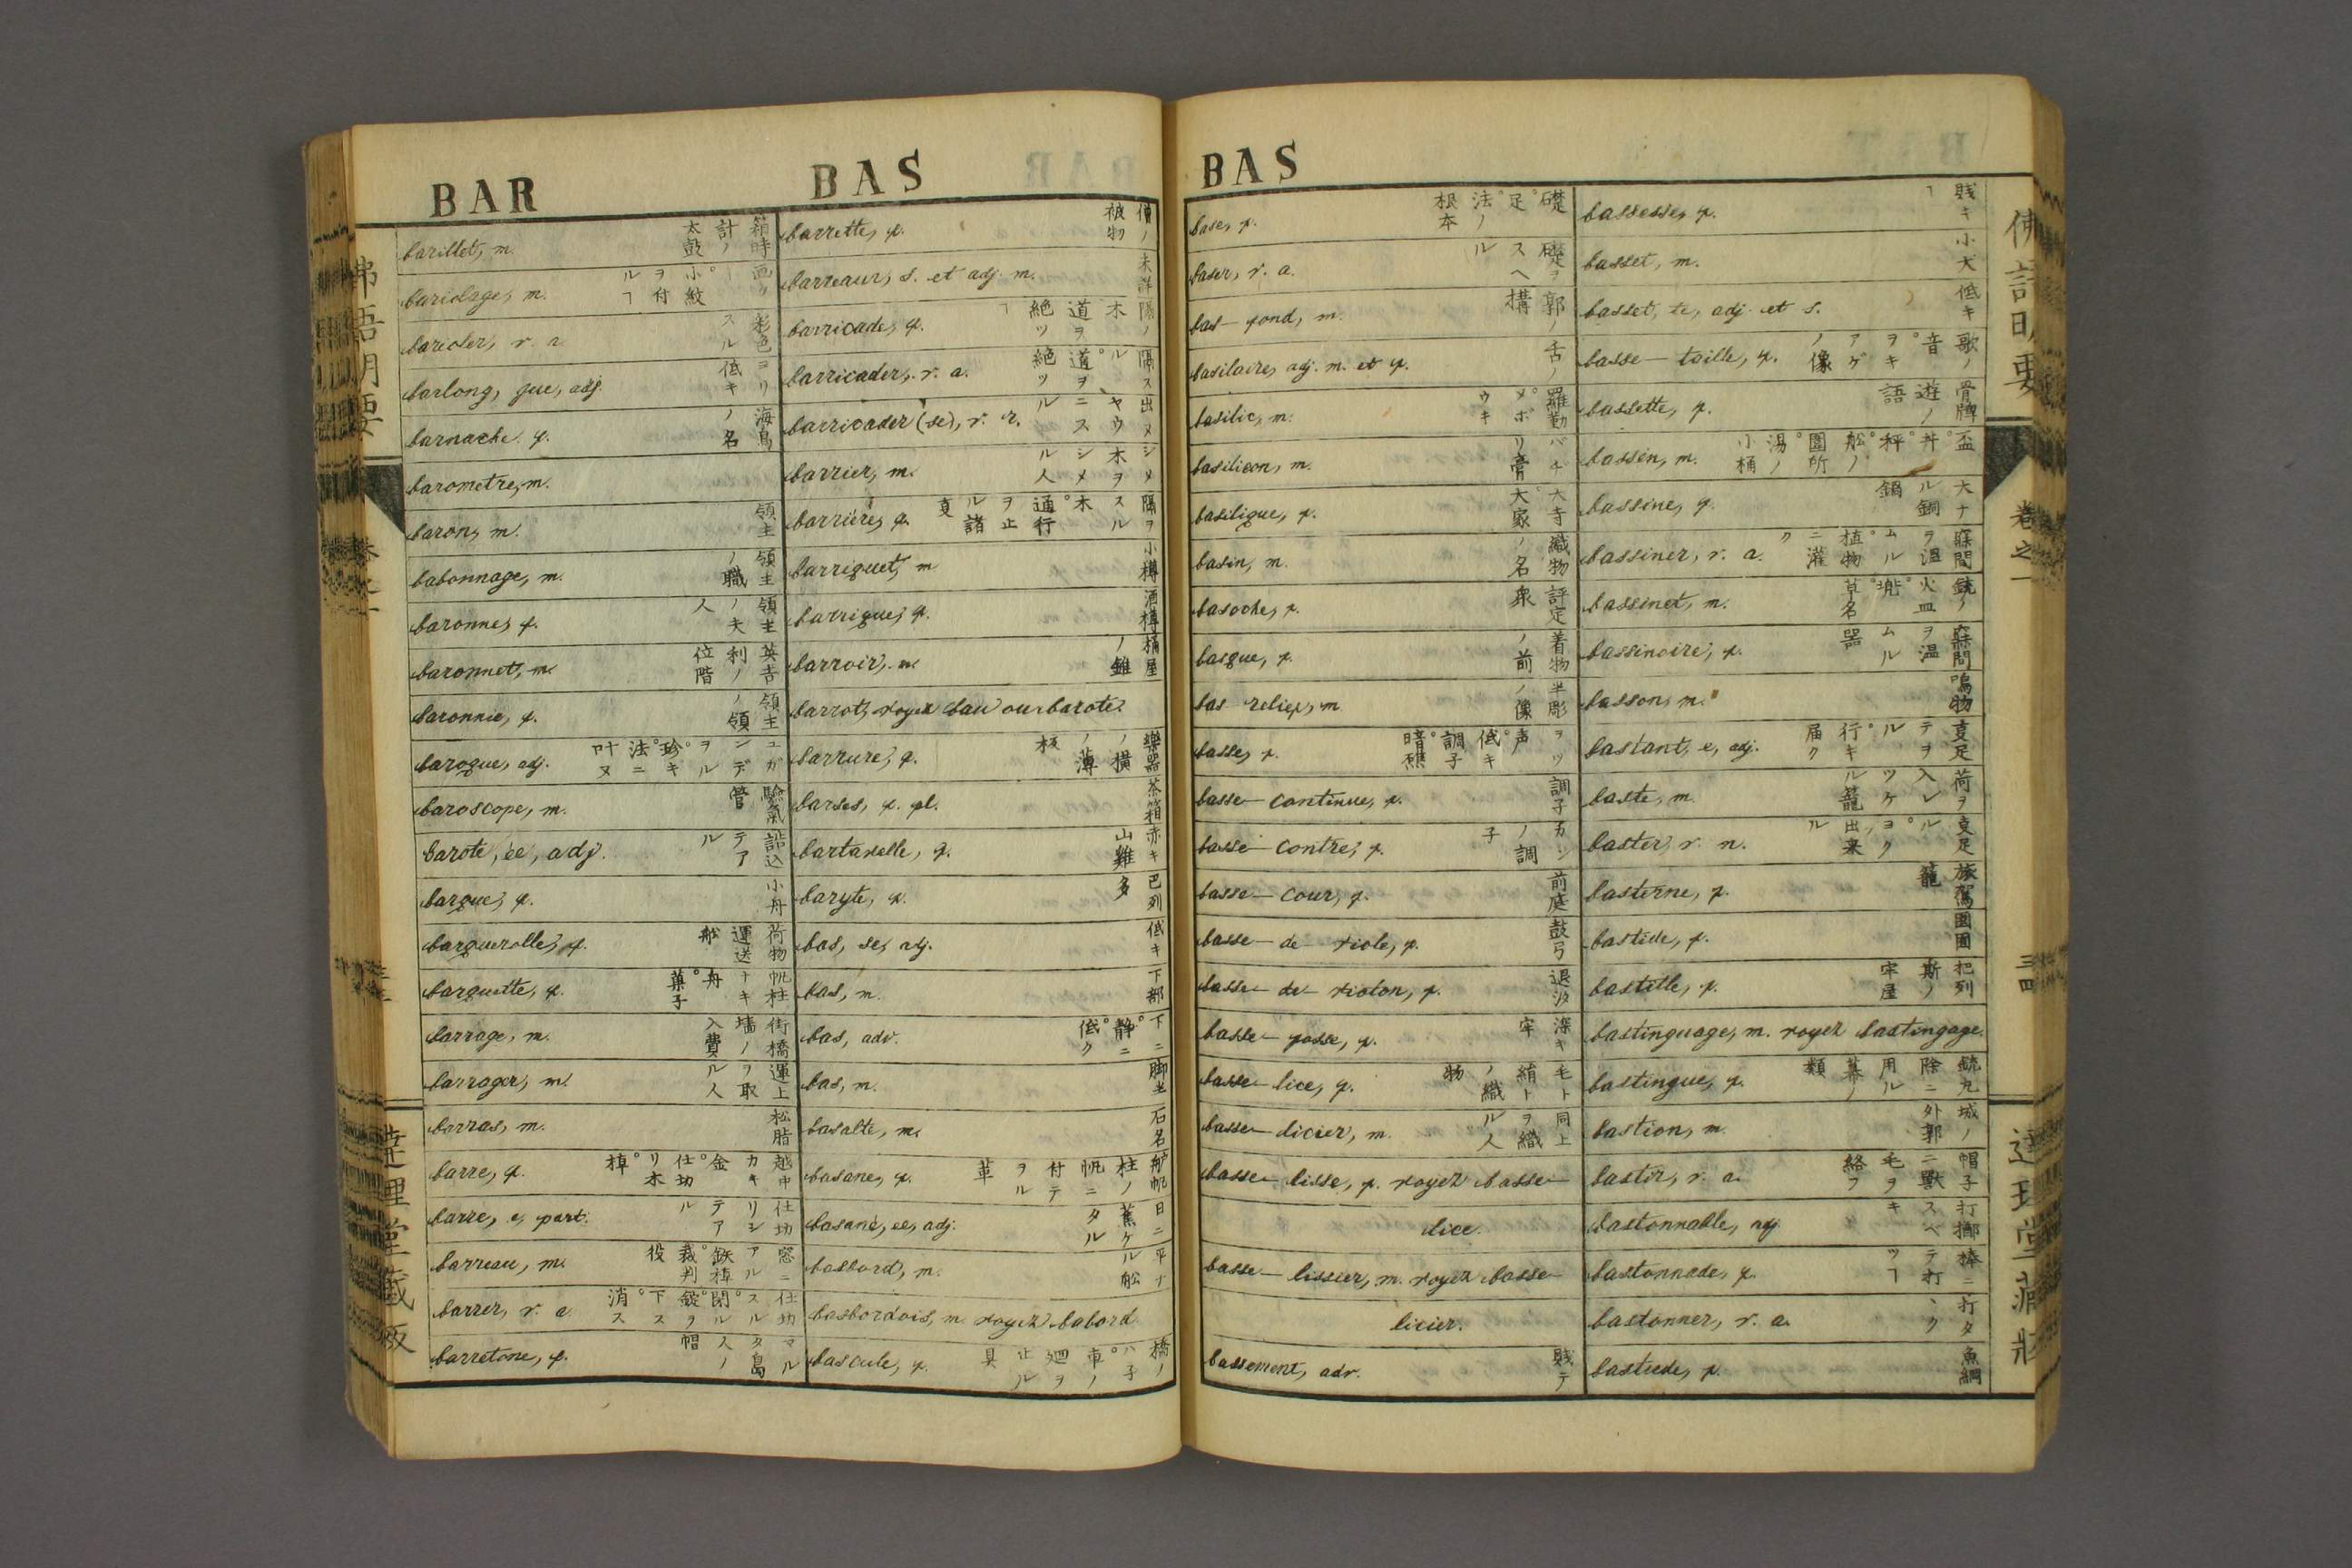 BAR
BAS
barillet, m. 箱時計ノ太鼓
bariolage, m.
barioler, v. a. 彩色スル
barlong, gue, adj. 低キ
barnache. f. 海鳥ノ名
barometre, m.
baron, m. 領主
babonnage, m. 領主ノ職
baronne, f. 領主ノ夫人
baronnet, m. 英吉利ノ位階
baronnie, f. 領主ノ領
baroque, adj. ユガンデヲル。珍キ。法ニ叶ヌ
baroscope, m. 驗氣管
baroté, ée, adj. 詰込テアル
barque, f. 小舟
barquerolle, f. 荷物運送舩
barquette, f. 帆柱ナキ舟。菓子
barrage, m. 街橋墻ノ入費
barrager, m. 運上ヲ取ル人
barras, m. 松脂
barre, f. 越中カキ金。仕切リ木。棹
barré, e, part. 仕切リシテアル
barreau, m. 窓ニアル鉄棹。裁判役
barrer, v. a. 仕切スル。閉ル。錠ヲ下ス。消ス
barretone, f. マルタ島人ノ帽
barrette, f. 僧ノ被物
barreaur, s. et adj. m. 未詳
barricade, f. 隔ノ木道ヲ絶ツヿ
barricader, v. a. 隔スル。道ヲ絶ツ
barricader (se), v. r. 出メヤウニスル
barrier, m. 木ヲシメル人
barriere, f. 隔ヲスル木。通行ヲ止ル諸㕝
barriquet, m. 小樽
barrique, f. 酒樽
barroir, m. 桶屋ノ錐
barrot, voyez bau ou baroté.
barrure, f. 樂器ノ横ノ薄板
barses, f. pl. 茶箱
bartavelle, f. 赤キ山雞
baryte, f. 巴列多
bas, se, adj. 低キ
bas, m. 下部
bas, adv. 下ニ。静ニ。低ク
bas, m. 脚半
basalte, m. 石名
basane, f.
basané, ée, adj. 日ニ蕉ケタル
basbord, m. 平ナル舩
basbordois, m. voyez babord
bascule, f. 橋ノハ子。車ノ廻ヲ止ル具
BAS
base, f. 礎。足。法ノ根本
baser, v. a. 礎ヲスヘル
bas-fond, m. 郭ノ構
basilaire, adj. m. et f. 舌ノ
basilic, m. 羅勒メボウキ
basilicon, m. バチリ膏
basilique, f. 大寺。大家
basin, m. 織物ノ名
basoche, f. 評定衆
basque, f. 着物ノ前
bas relief, m. 半彫ノ像
basse, f.
basse-continue, f. 調子
basse-contre, f. カンノ調子
basse-cour, f. 前庭
basse-de-viole, f. 鼓弓
basse-de-violon, f.
basse-fosse, f. 深キ牢
basse-lice, f. 毛ト絹トノ織物
basse-licier, m. 同上ヲ織ル人
basse-lisse, f. voyez basse-
lice.
basse-lissier, m. voyez basse-
licier.
bassement, adv. 賤テ
bassesse, f. 賎キヿ
basset, m. 小犬
basset, te, adj. et s. 低キ
basse-taille, f. 歌ノ音。ヲキアゲノ像
bassette, f. 骨牌遊ノ語
bassen, m. 盃。丼。秤。舩ノ圍所。湯ノ小桶
bassine, f. 大ナル銅鍋
bassiner, v. a. 寐間ヲ温ムル。植物ニ灌ク
bassinet, m. 銃ノ火皿。兠。草名
bassinoire, f. 寐間ヲ温ムル器
basson, m. 鳴物
bastant, e, adj. 㕝足テヲル。行キ届ク
baste, m. 荷ヲ入レツケル籠
baster, v. n. 㕝足ル。ヨク出来ル
basterne, f. 旅駕籠
bastide, f.
bastille, f. 杷列斯ノ牢屋
bastinguage, m. voyez bastingage.
bastingue, f. 銃丸除ニ用ル幕ノ類
bastion, m. 城ノ外郭
bastir, v. a. 帽子ニ獸毛ヲ絡フ
bastonnable, adj. 打擲スベキ
bastonnade, f. 棒ニテ打ツヿ
bastonner, v. a. 打タヽク
bastude, f. 魚網
佛語明要
卷之一
三四
達理堂藏版